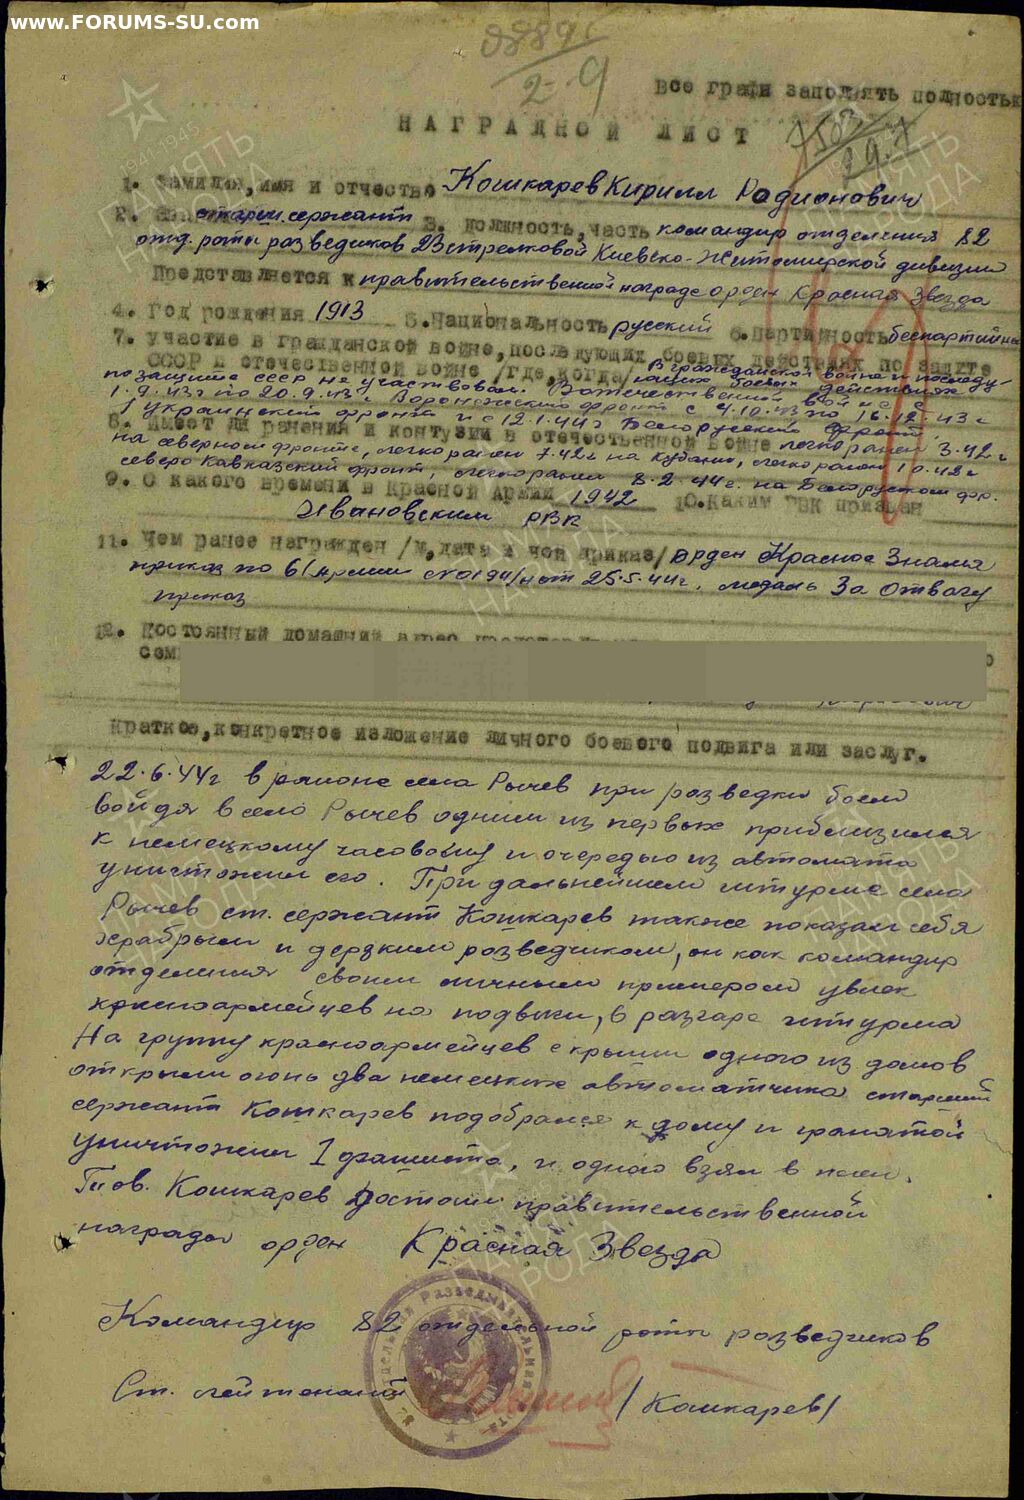 www.FORUMS-SU.com
2-9
все графи заполнять полностью
НАГРАДНОЙ ЛИСТ
1. Фамилия, имя и отчество Кошкарев Кирилл Родионович
2. Звание старш. сержант 3. Должность, часть командир отделения 82
отд. роты разведчиков 23 стрелковой Киевско-Житомирской дивизии
Представляется к правительственной награде орден Красная Звезда
4. Год рождения 1913 5. Национальность русский 6. Партийность беспартийн
7. участие в гражданской войне, последующих боевых действиях по защите
СССР и отечественной войне /где, когда/ В гражданской войне и последу-
ющих боевых действиях
по защите СССР не участвовал. В отечественной войне с
1.9.43г по 20.9.43г Воронежский фронт с 4.10.43 по 16.12.43г
1 украинский фронт и с 12.1.44г Белорусский фронт.
8. Имеет ли ранения и контузии в отечественной войне легко ранен 3.42г
на северном фронте, легко ранен 7.42г на Кубани, легко ранен 10.42г
северо Кавказский фронт, легко ранен 8.2.44г. на Белорусском фр.
9. С какого времени в Красной Армии 1942 10. Каким РВК призван
Ивановским РВК
11. Чем ранее награжден /№, дата и чей приказ/ Орден Красное Знамя
приказ по 61 армии №0194/н от 25.5.44г, медаль За Отвагу
приказ
12. Постоянный домашний адрес
сем
краткое, конкретное изложение личного боевого подвига или заслуг.
22.6.44г в районе села Рычев при разведки боем
войдя в село Рычев одним из первых приблизился
к немецкому часовому и очередью из автомата
уничтожил его. При дальнейшем штурме села
Рычев ст. сержант Кошкарев также показал себя
храбрым и дерзким разведчиком, он как командир
отделения своим личным примером увлек
красноармейцев на подвиги, в разгаре штурма
На группу красноармейцев с крыши одного из домов
открыли огонь два немецких автоматчика старший
сержант Кошкарев подобрался к дому и гранатой
уничтожил 1 фашиста, и одного взял в плен.
Тов. Кошкарев достоин правительственной
награды орден Красная Звезда
Командир 82 отдельной роты разведчиков
Ст. лейтенант /Кошкарев/